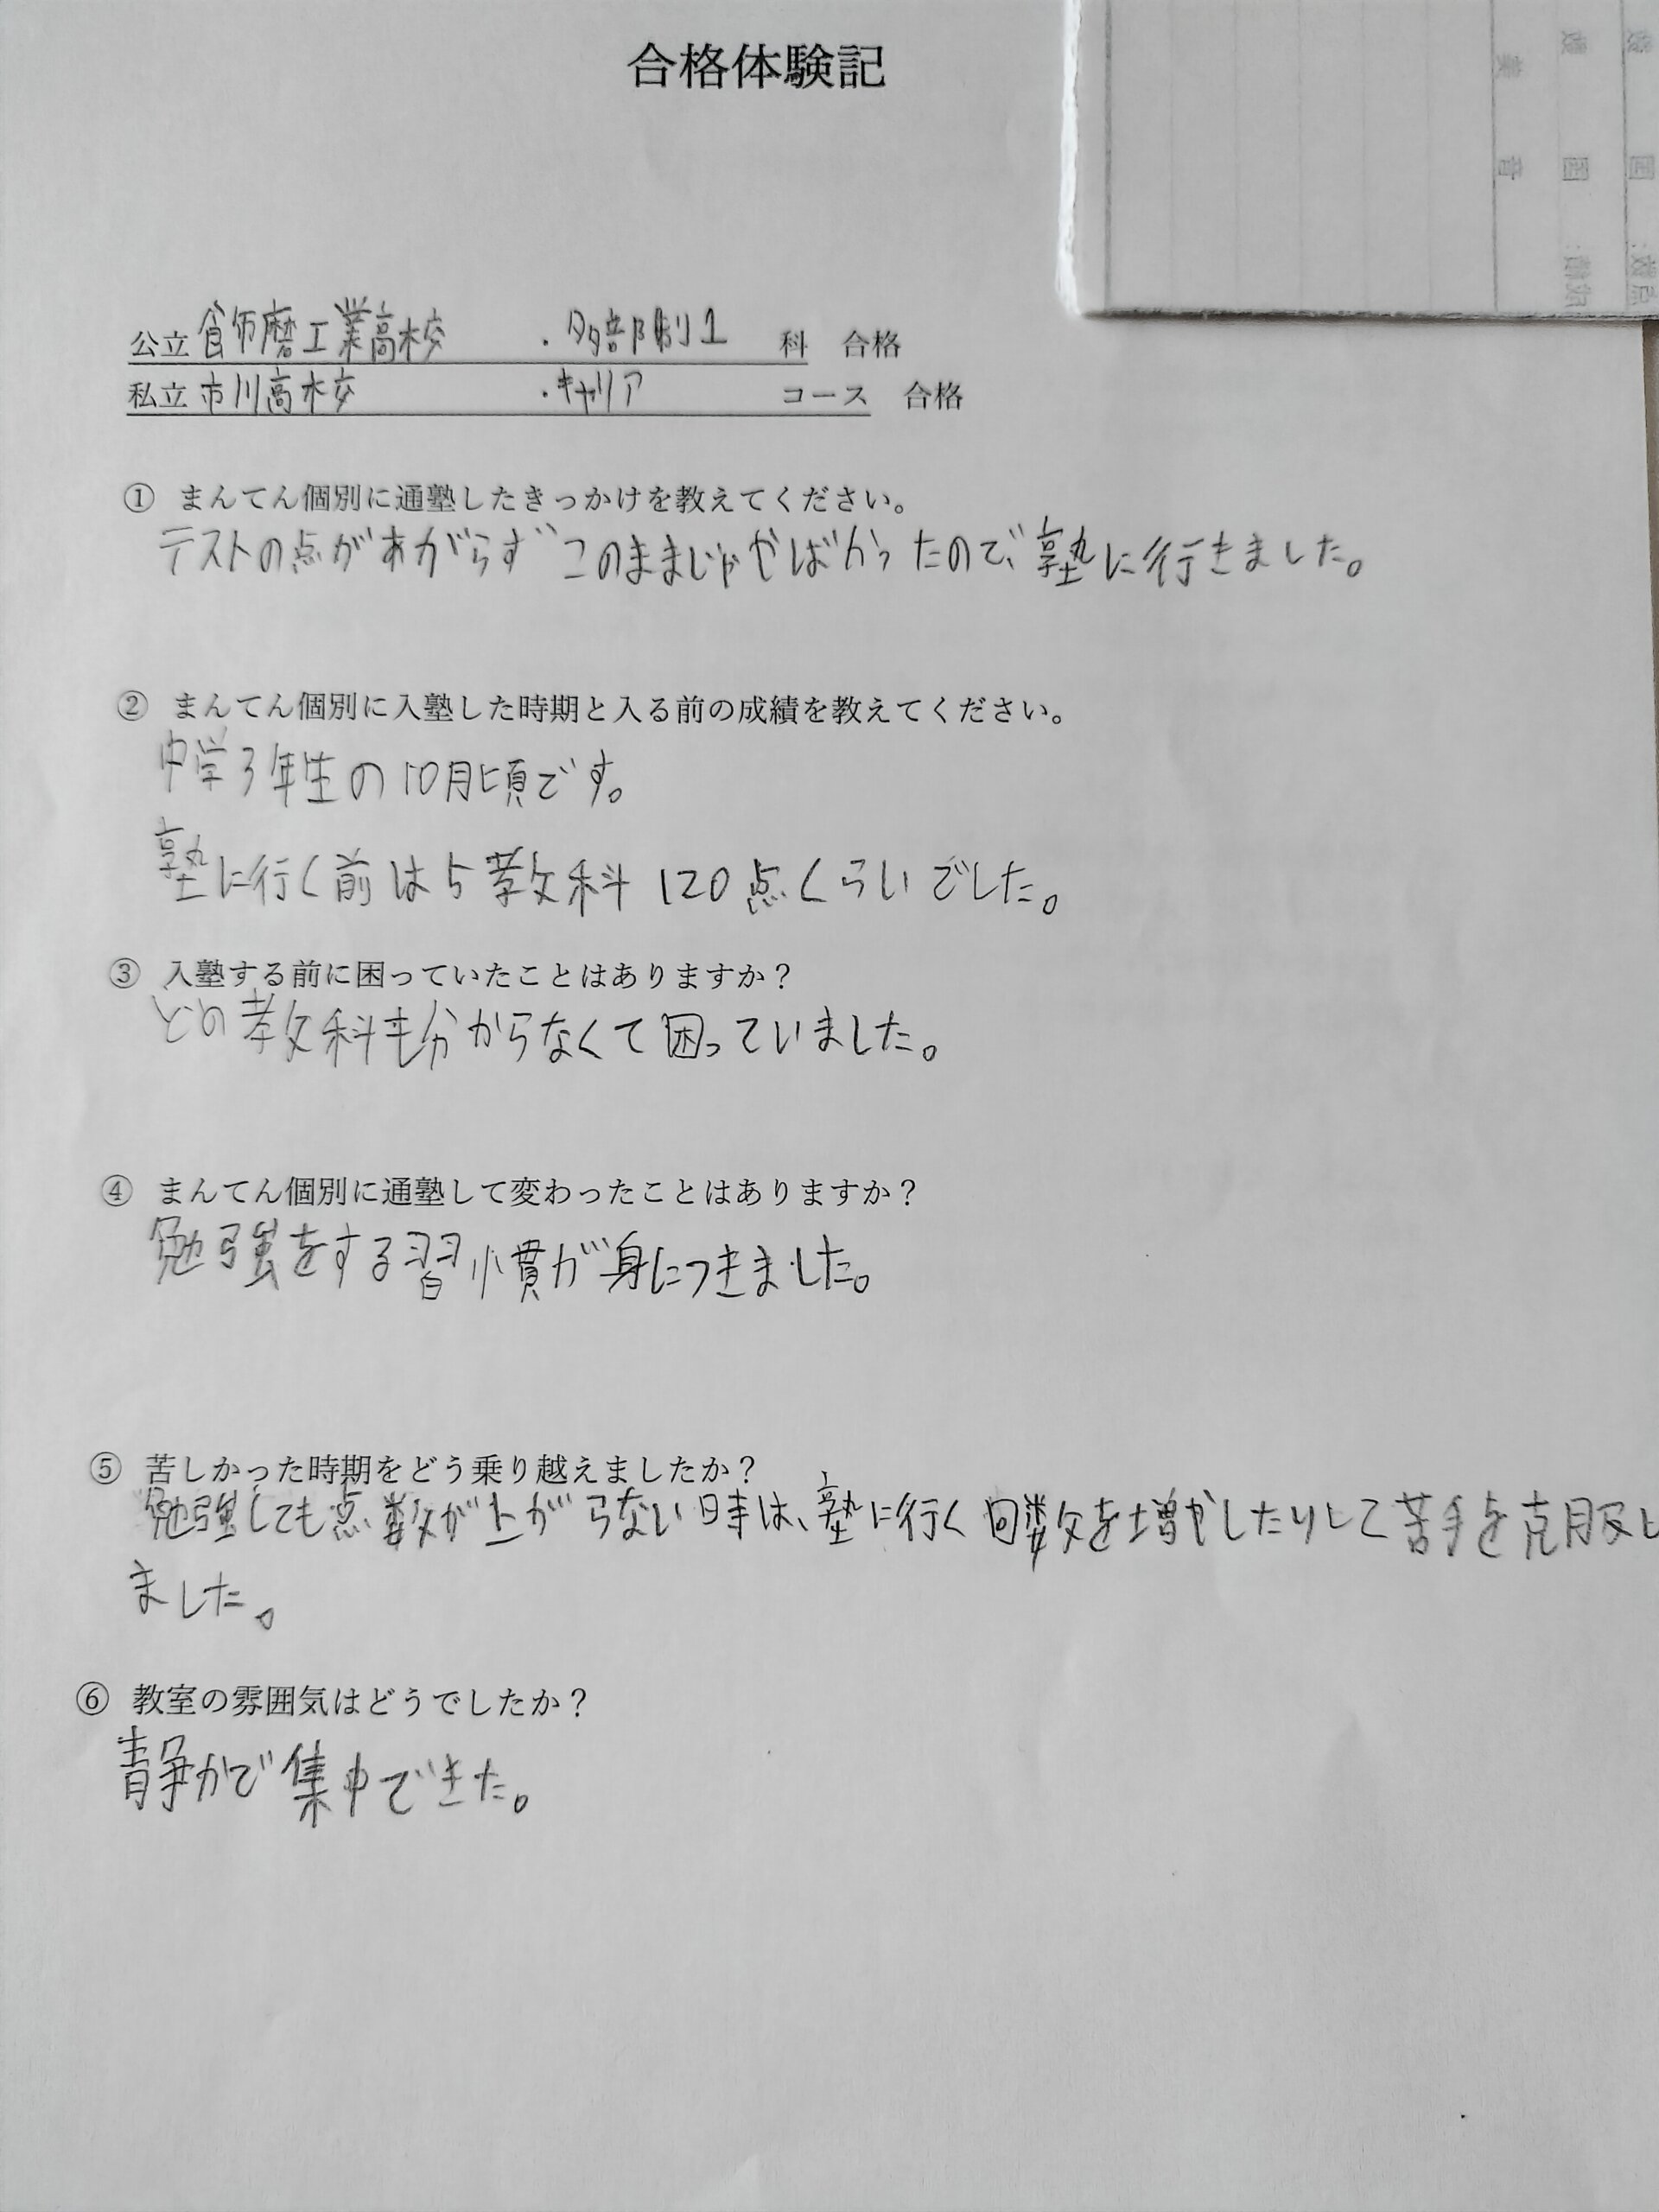 合格体験記
公立 飾磨工業高校 ・多部制1 科 合格
私立 市川高校 ・キャリア コース 合格
① まんてん個別に通塾したきっかけを教えてください。
テストの点があがらずこのままじゃやばかったので、塾に行きました。
② まんてん個別に入塾した時期と入る前の成績を教えてください。
中学3年生の10月頃です。
塾に行く前は5教科120点くらいでした。
③ 入塾する前に困っていたことはありますか？
どの教科も分からなくて困っていました。
④ まんてん個別に通塾して変わったことはありますか？
勉強をする習慣が身につきました。
⑤ 苦しかった時期をどう乗り越えましたか？
勉強しても点数が上がらない時は、塾に行く回数を増やしたりして苦手を克服し
ました。
⑥ 教室の雰囲気はどうでしたか？
静かで集中できた。